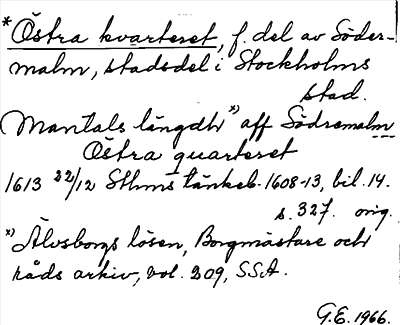 *Östra kvarteret, f. del av Söder-
malm, stadsdel i Stockholms
stad.
Mantals längdh x) aff Södremalm
Östra quarteret
1613 22/12 Sthms tänkeb. 1608-13, bil. 14.
s. 327. orig.
x) Älvsborgs lösen, Borgmästare och
råds arkiv, vol. 209, SSA.
G.E. 1966.